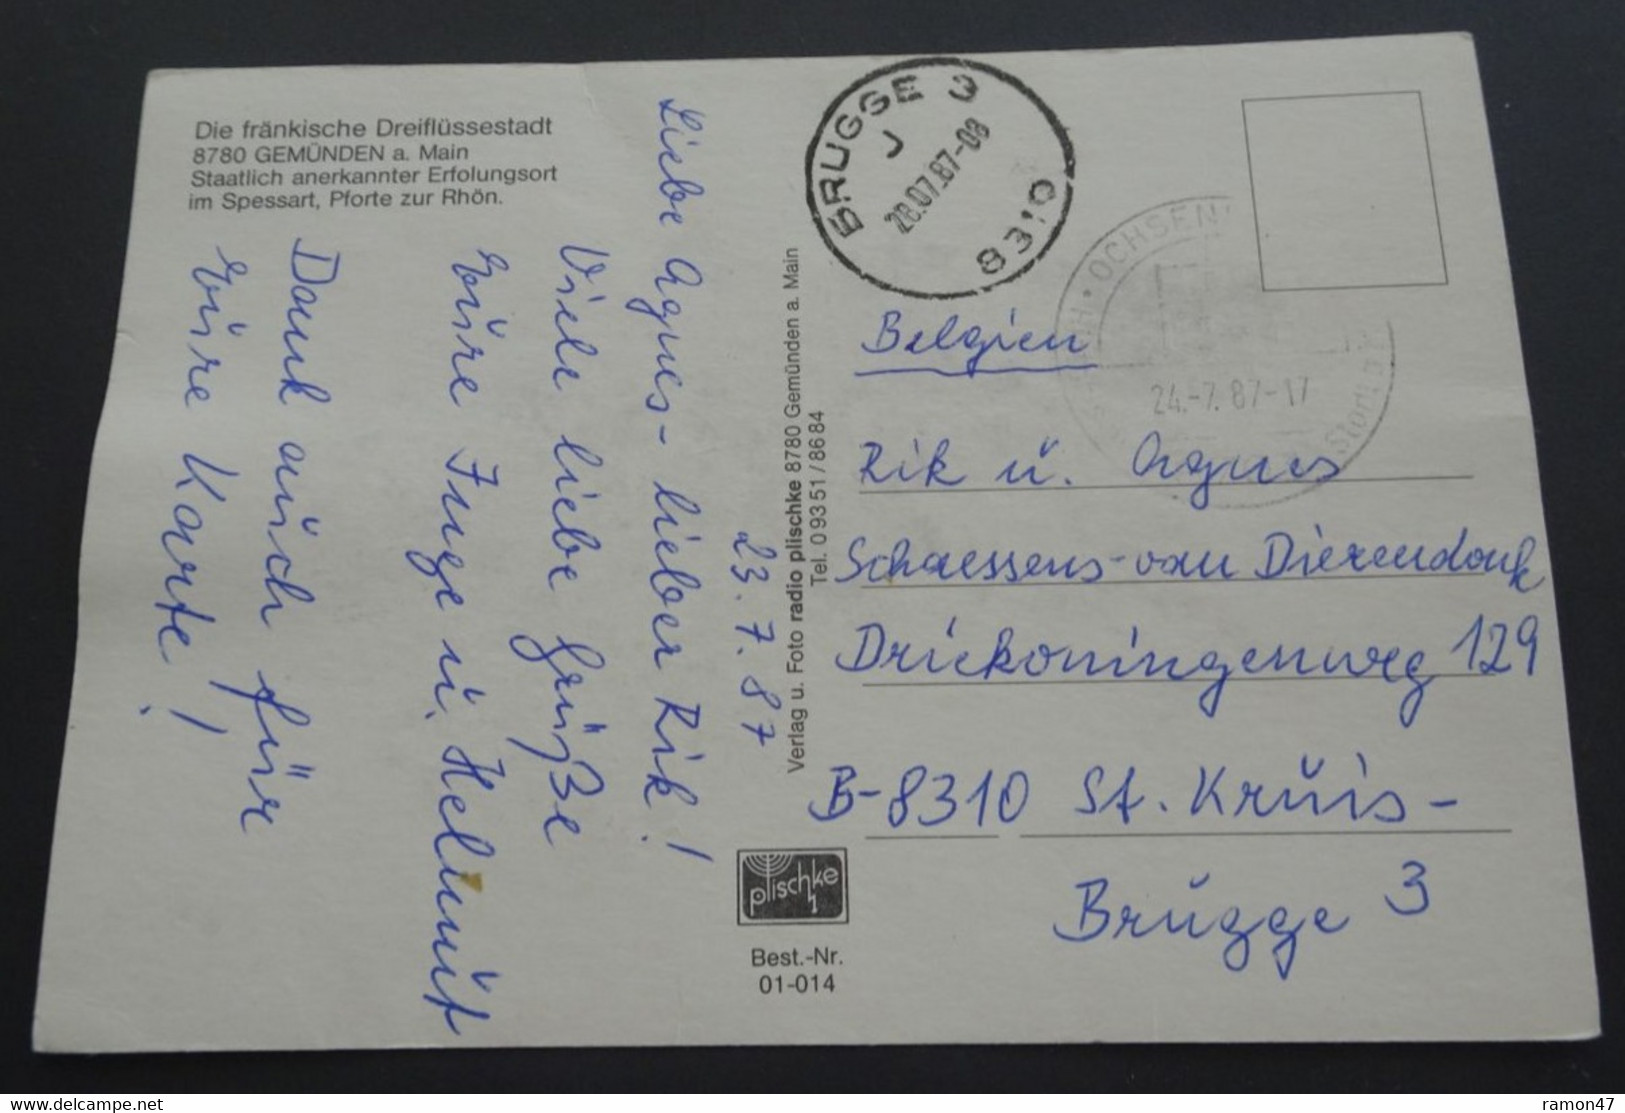 Die fränkische Dreiflüssestadt
8780 GEMÜNDEN a. Main
Staatlich anerkannter Erfolungsort
im Spessart, Pforte zur Rhön.
23.7.87
Liebe Agnes- lieber Rik!
Viele liebe Grüße
Eure Inge u. Helmut
Dank auch für
Eure Karte!
Verlag u. Foto radio plischke 8780 Gemünden a. Main
Tel. 0 93 51 / 86 84
plischke
Best.-Nr.
01-014
BRUGGE 3
J
28.07.87-08
8310
OCHSEN
24.-7.87-17
Belgien
Rik u. Agnes
Schaessens-van Dierendonk
Driekoningenweg 129
B-8310 St. Kruis-
Brugge 3
www.delcampe.net
ramon47